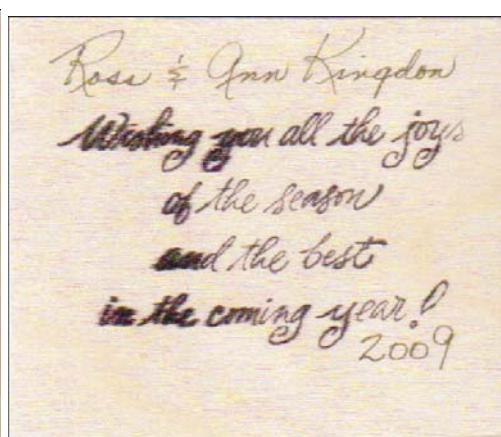 Ross & Ann Kingdon
Wishing you all the joys
of the season
and the best
in the coming year!
2009